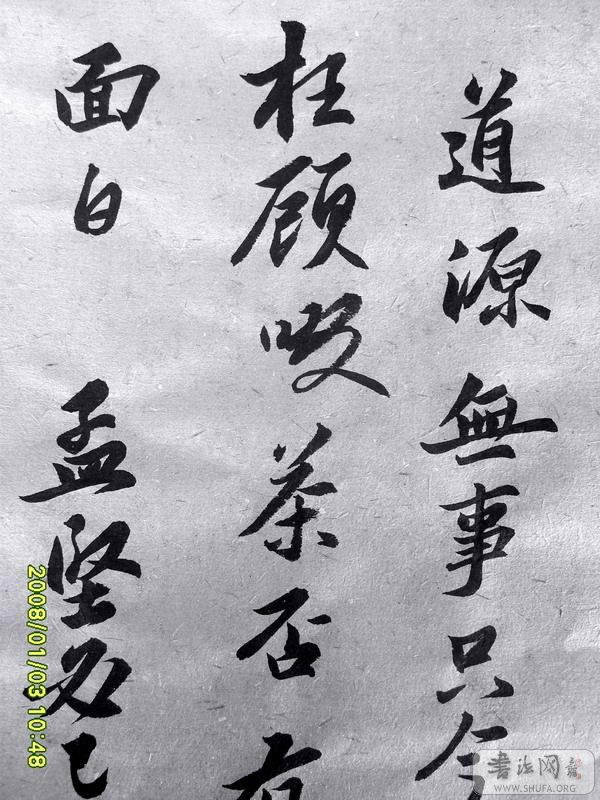 道源無事只今
枉顧啜茶否有
面白 孟堅必已
2008/01/03 10:48
书法网
WWW.SHUFA.ORG